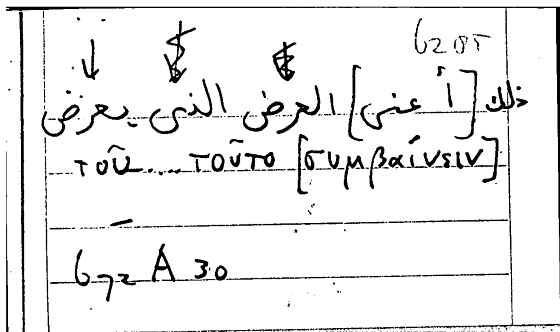 6205
ذلك [أعنى] العرض الذى يعرض
τοῦ .... τοῦτο [συμβαίνειν]
672 A 30